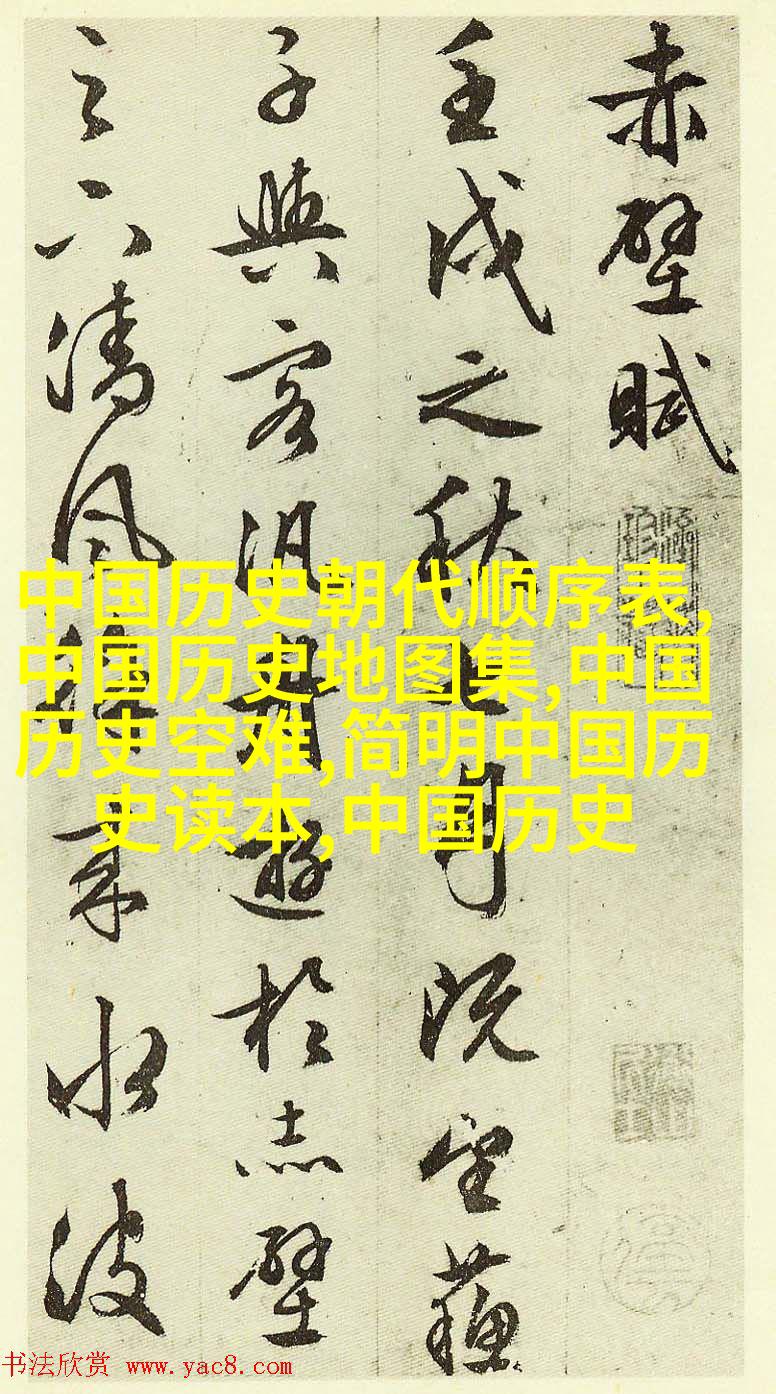 赤壁賦
壬戌之秋七月既望蘇
子與客汎舟遊於赤壁
之下清風徐來水波
中国历史朝代顺序表,
中国历史地图集,中国
历史空难,简明中国历
史读本,中国历史
书法欣赏 www.yac8.com